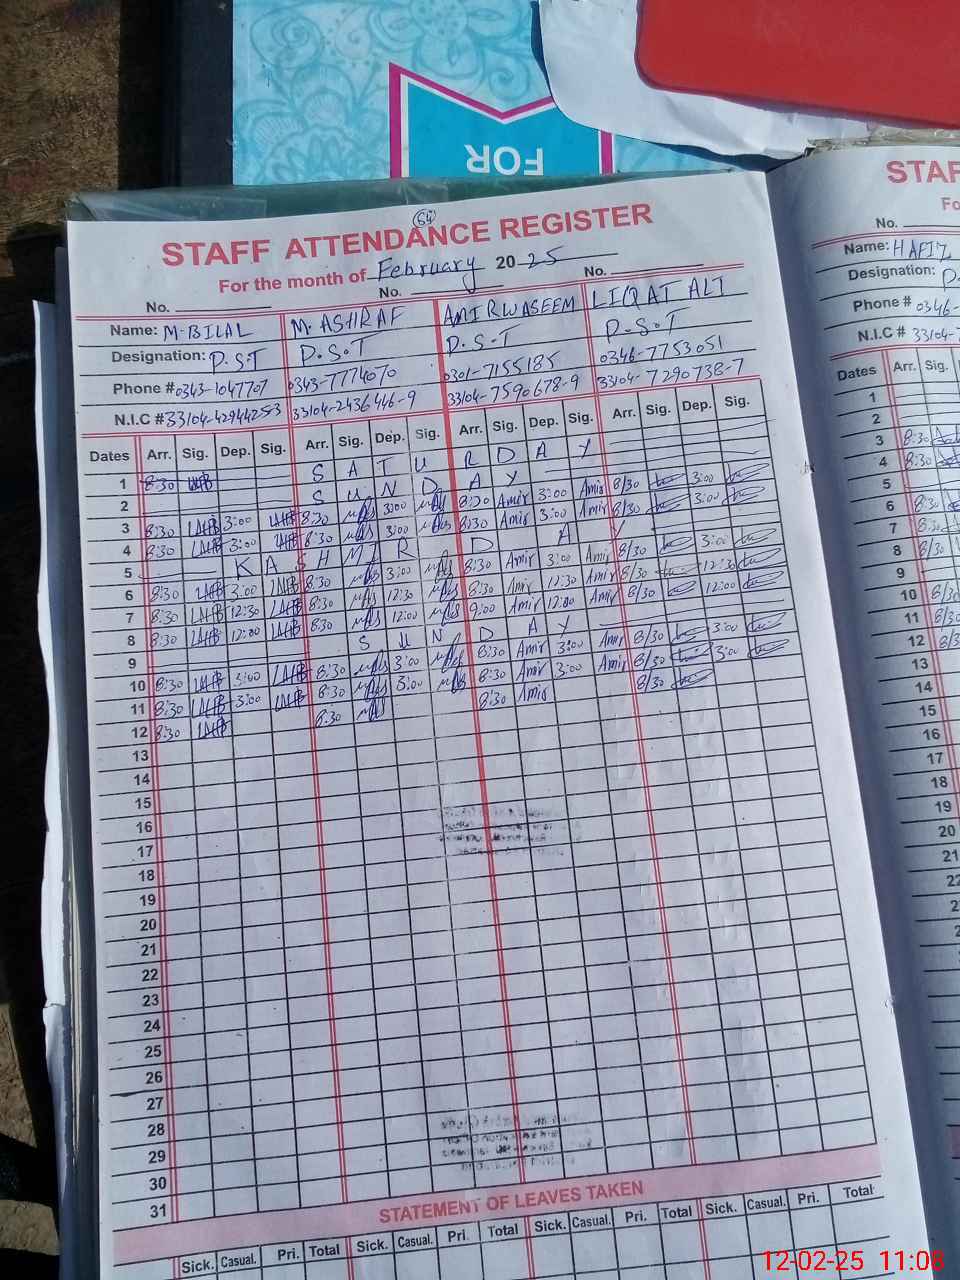 FOR
54
STAFF ATTENDANCE REGISTER
For the month of February 20 25
No. No. No.
Name: M-BILAL M. ASHRAF AMIR WASEEM LIQAT ALI
Designation: P.S.T P.S.T P.S.T P.S.T
Phone # 0343-1047707 0343-7774070 0301-7155185 0346-7753051
N.I.C # 33104-4294425-3 33104-2436446-9 33104-7590678-9 33104-7290738-7
Dates Arr. Sig. Dep. Sig. Arr. Sig. Dep. Sig. Arr. Sig. Dep. Sig. Arr. Sig. Dep. Sig.
1 8:30 SATURDAY
2 SUNDAY
3 8:30 3:00 8:30 3:00 8:30 Amir 3:00 Amir 8/30 3:00
4 8:30 3:00 8:30 3:00 8:30 Amir 3:00 Amir 8/30 3:00
5 KASHMIR DAY
6 8:30 3:00 8:30 3:00 8:30 Amir 3:00 Amir 8/30 3:00
7 8:30 12:30 8:30 12:30 8:30 Amir 12:30 Amir 8/30 12:30
8 8:30 12:00 8:30 12:00 9:00 Amir 12:00 Amir 8/30 12:00
9 SUNDAY
10 8:30 3:00 8:30 3:00 8:30 Amir 3:00 Amir 8/30 3:00
11 8:30 3:00 8:30 3:00 8:30 Amir 3:00 Amir 8/30 3:00
12 8:30 8:30 8:30 Amir 8/30
13
14
15
16
17
18
19
20
21
22
23
24
25
26
27
28
29
30
31
STATEMENT OF LEAVES TAKEN
Sick. Casual. Pri. Total Sick. Casual. Pri. Total Sick. Casual. Pri. Total Sick. Casual. Pri. Total
STAF
Fo
No.
Name: HAFIZ
Designation: P
Phone # 0346-
N.I.C # 33104-
Dates Arr. Sig.
1
2
3 8:30
4 8:30
5
6 8:30
7 8:30
8 8:30
9
10 8:30
11 8:30
12 8:30
13
14
15
16
17
18
19
20
21
22
12-02-25 11:08